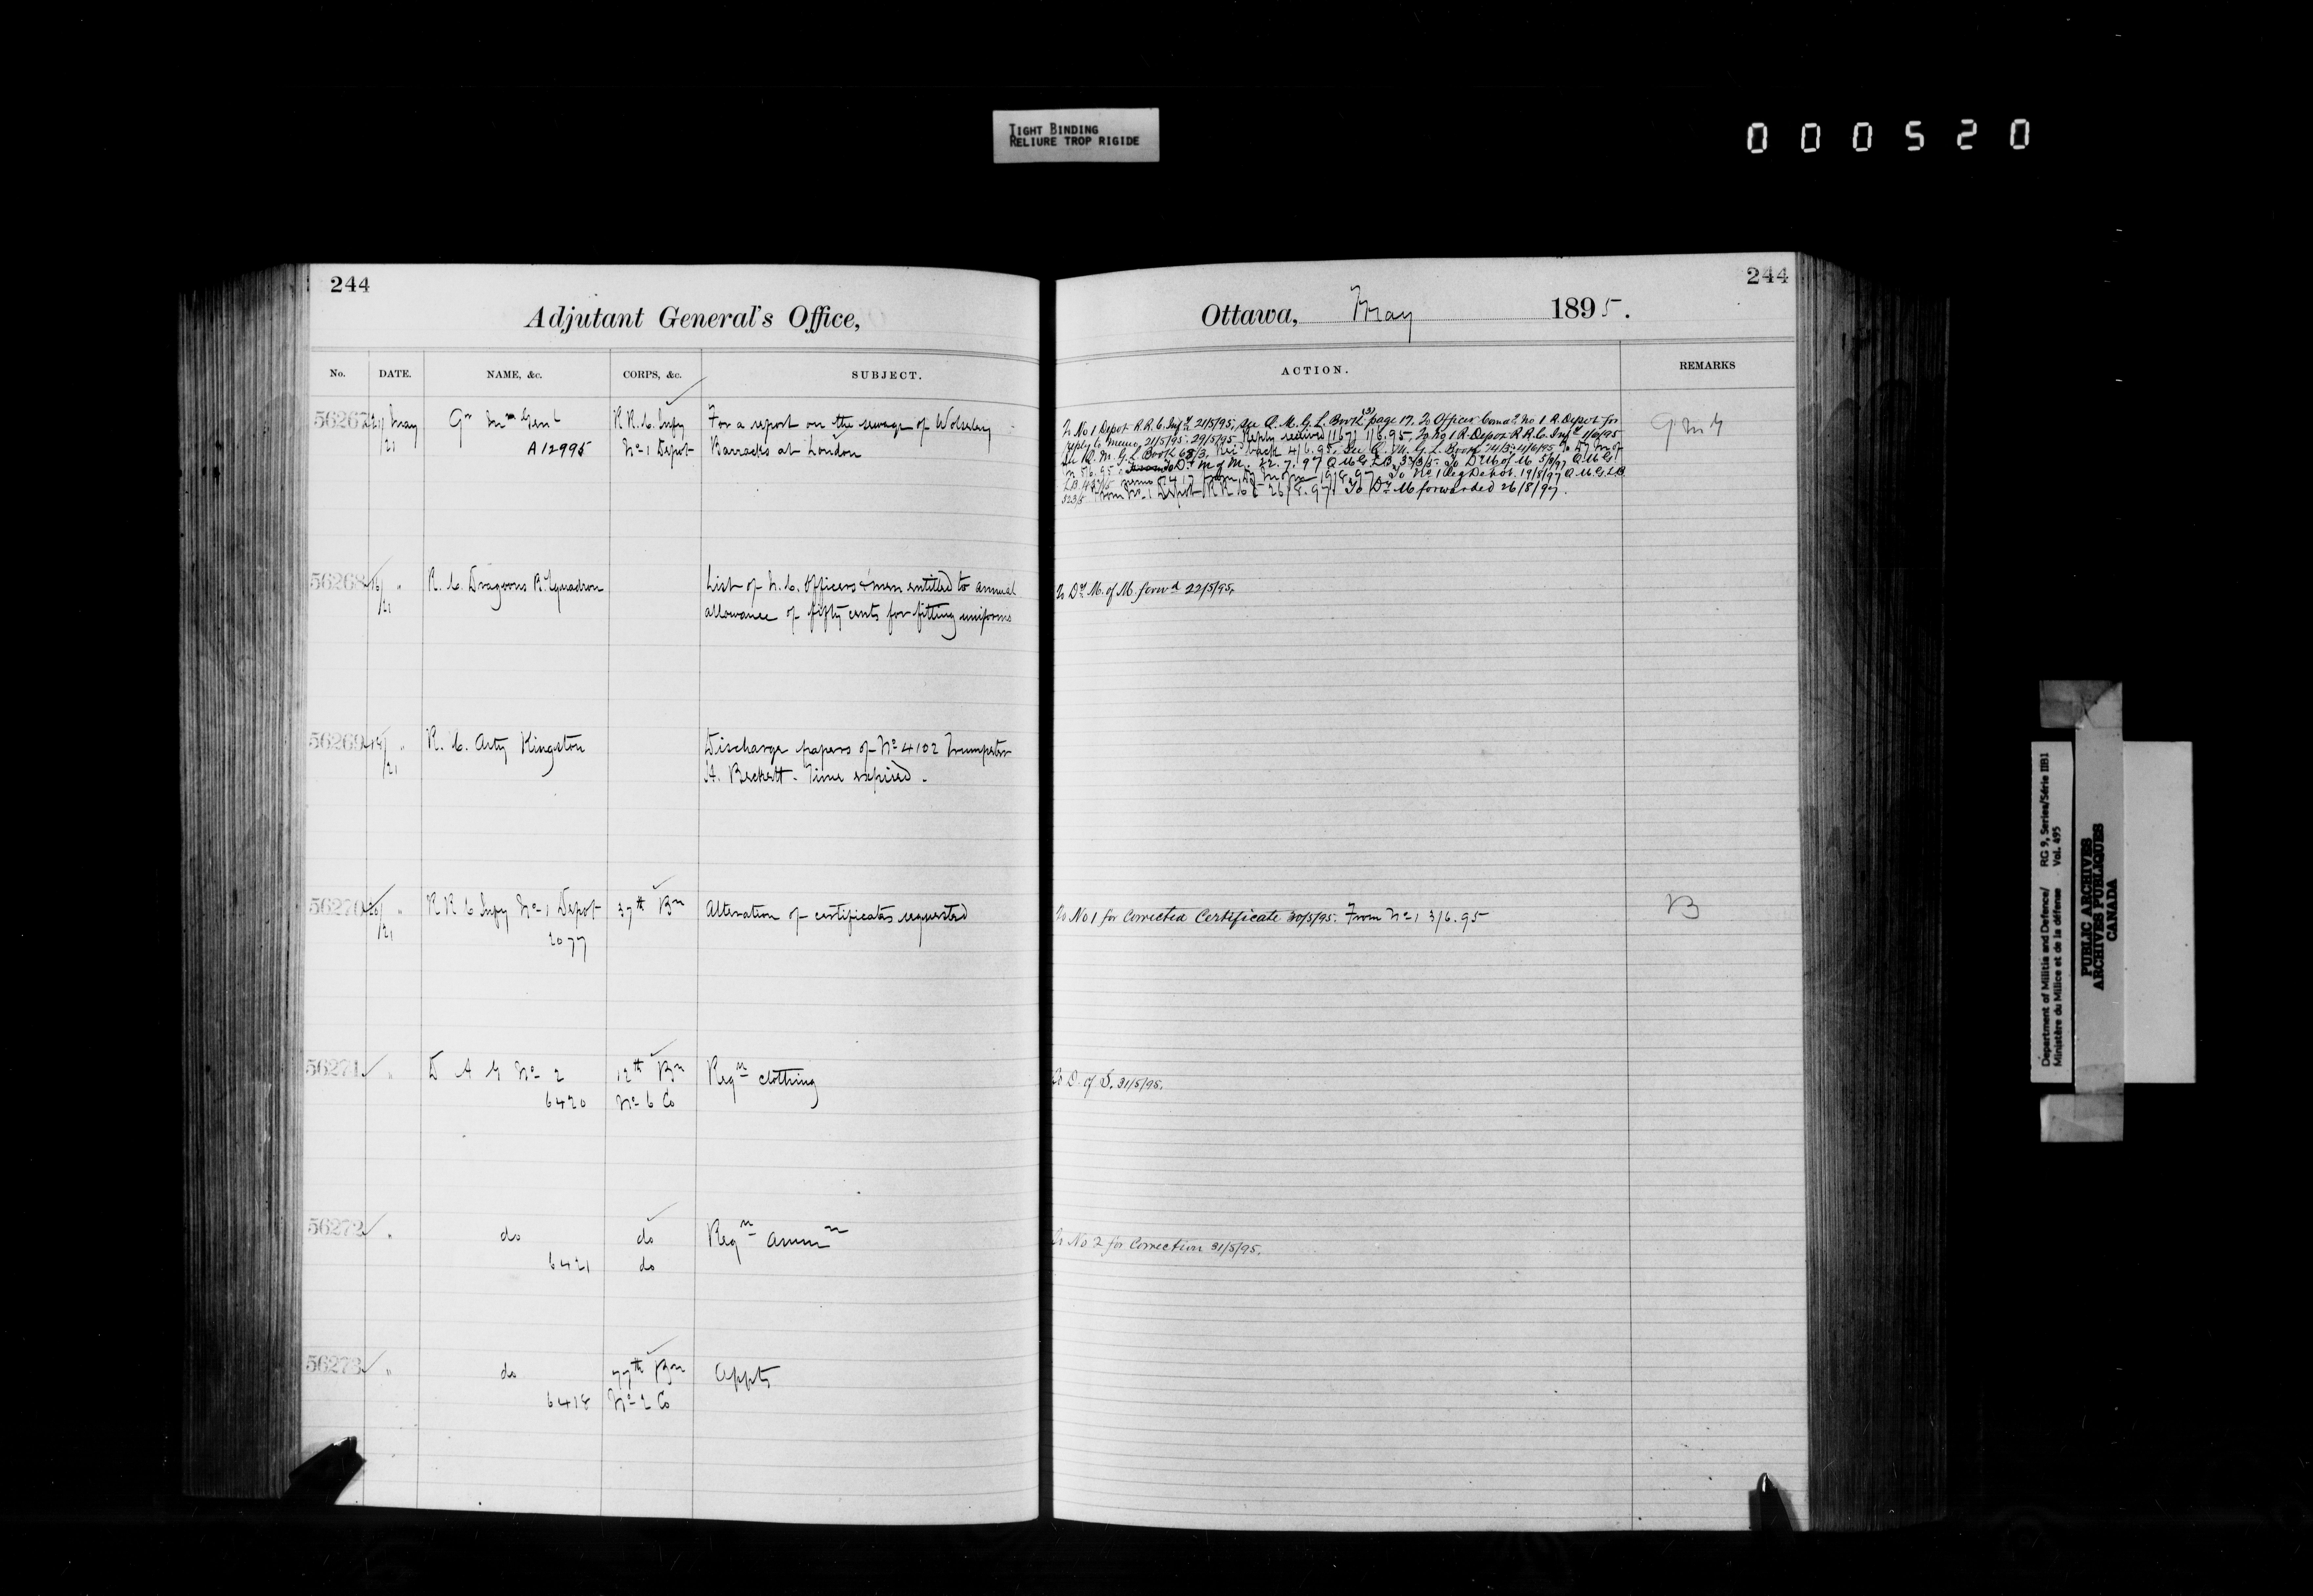 TIGHT BINDING
RELIURE TROP RIGIDE
000520
244
Adjutant General's Office,
No. DATE. NAME, &c. CORPS, &c. SUBJECT.
56267 21/ May Qr Mr Genl R.R.C. Infy For a report on the sewage of Wolseley
/21 A12995 No 1 Depot Barracks at London
56268 16/ " R. C. Dragoons B. Squadron List of N. C. Officers & men entitled to annual
/21 allowance of fifty cents for fitting uniforms
56269 14/ " R. C. Arty Kingston Discharge papers of No 4102 Trumpeter
/21 A. Beckett. Time expired.
56270 20/ " R R C Infy No 1 Depot 37th Bn Alteration of certificates requested
/21 2077
56271 " D A G No 2 12th Bn Reqn clothing
6420 No 6 Co
56272 " do do Reqn ammn
6421 do
56273 " do 77th Bn Appts
6418 No 2 Co
244
Ottawa, May 1895.
ACTION. REMARKS
To No 1 Depot R.R.C. Infy 21/5/95; see Q.M.G.L. Book (3) page 17. To Officer Comdg No 1 R. Depot for Q M G
reply to memo, 21/5/95. 29/5/95 Reply received 11671 1/6.95. To No 1 R. Depot R.R.C. Infy 1/6/95
See Q.M.G.L. Book 68/3. Rec'd back 4/6.95. See Q.M.G.L. Book 74/3
D. M of M. 22.7.97 Q M G L B 373/5. To D. M of M. 5/8/97 Q M G
To No 1 Reg Depot. 19/8/97 Q M G L B
523/5 From No 1 Depot R R C I 26/8.97. To D. M forwarded 26/8/97.
To Dy M. of M. forwd 22/5/95.
To No 1 for Corrected Certificate 30/5/95. From No 1 3/6.95 B
To D. of S. 31/5/95.
To No 2 for Correction 31/5/95.
Department of Militia and Defence/ RG 9, Series/Série IIB1
Ministère du Milice et de la défense Vol. 495
PUBLIC ARCHIVES
ARCHIVES PUBLIQUES
CANADA